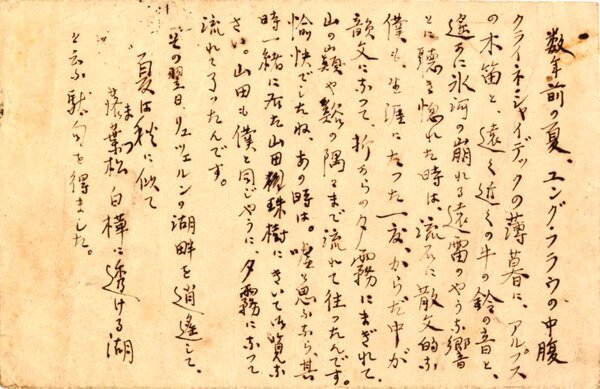 数年前の夏、ユングフラウの中腹
クライネシャイデックの薄暮に、アルプス
の木笛と、遠く近くの牛の鈴の音と、
遥かに氷河の崩れる遠雷のやうな響
とに聴き惚れた時は、流石に散文的な
僕も生涯にたった一度、からだ中が
韻文になって、折からの夕霧にまぎれて、
山の巓や谿の隅々まで流れて往ったんです。
愉快でしたね、あの時は。嘘と思ふなら、其
時一緒に在た山田珠樹にきいて御覧な
さい。山田も僕と同じやうに、夕霧になって
流れて了ったんです。
その翌日、リュツェルンの湖畔を逍遙して、
夏は秋に似て
落葉松 白樺に透ける湖
まつ
と云ふ駄句を得ました。